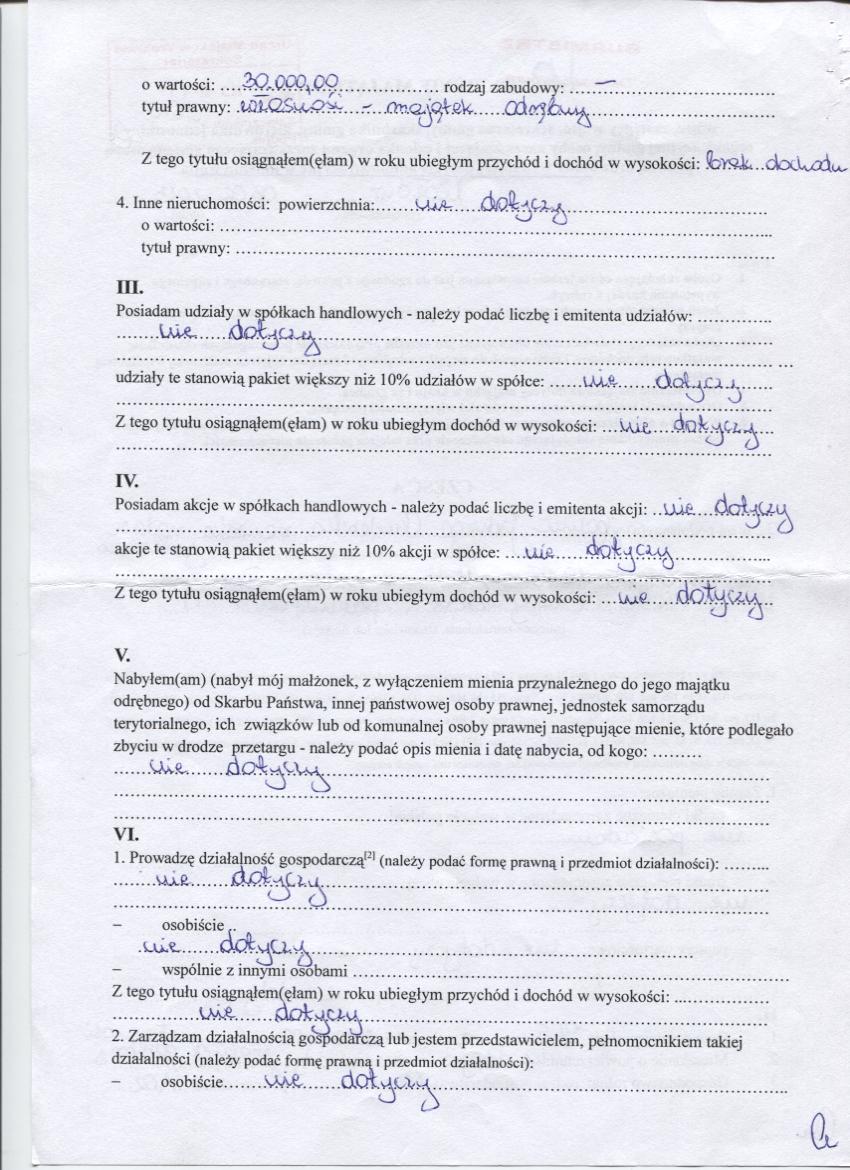 o wartości: ....30.000,00........................ rodzaj zabudowy: ....—...................................
tytuł prawny: własność – majątek odrębny
Z tego tytułu osiągnąłem(ęłam) w roku ubiegłym przychód i dochód w wysokości: brak dochodu
4. Inne nieruchomości: powierzchnia:........nie dotyczy........
o wartości: ........................................................
tytuł prawny: ........................................................
III.
Posiadam udziały w spółkach handlowych - należy podać liczbę i emitenta udziałów: ..............
........nie dotyczy........
........................................................
udziały te stanowią pakiet większy niż 10% udziałów w spółce: ......nie dotyczy......
........................................................
Z tego tytułu osiągnąłem(ęłam) w roku ubiegłym dochód w wysokości: ...nie dotyczy...
........................................................
IV.
Posiadam akcje w spółkach handlowych - należy podać liczbę i emitenta akcji: ..nie dotyczy
........................................................
akcje te stanowią pakiet większy niż 10% akcji w spółce: ...nie dotyczy...................
........................................................
Z tego tytułu osiągnąłem(ęłam) w roku ubiegłym dochód w wysokości: ...nie dotyczy..
V.
Nabyłem(am) (nabył mój małżonek, z wyłączeniem mienia przynależnego do jego majątku
odrębnego) od Skarbu Państwa, innej państwowej osoby prawnej, jednostek samorządu
terytorialnego, ich związków lub od komunalnej osoby prawnej następujące mienie, które podlegało
zbyciu w drodze przetargu - należy podać opis mienia i datę nabycia, od kogo: .........
........nie dotyczy........
........................................................
........................................................
VI.
1. Prowadzę działalność gospodarczą[2] (należy podać formę prawną i przedmiot działalności): .........
........nie dotyczy........
........................................................
– osobiście ..
.nie dotyczy........
– wspólnie z innymi osobami ........................................................
Z tego tytułu osiągnąłem(ęłam) w roku ubiegłym przychód i dochód w wysokości: ...................
........nie dotyczy........
2. Zarządzam działalnością gospodarczą lub jestem przedstawicielem, pełnomocnikiem takiej
działalności (należy podać formę prawną i przedmiot działalności):
– osobiście........nie dotyczy........